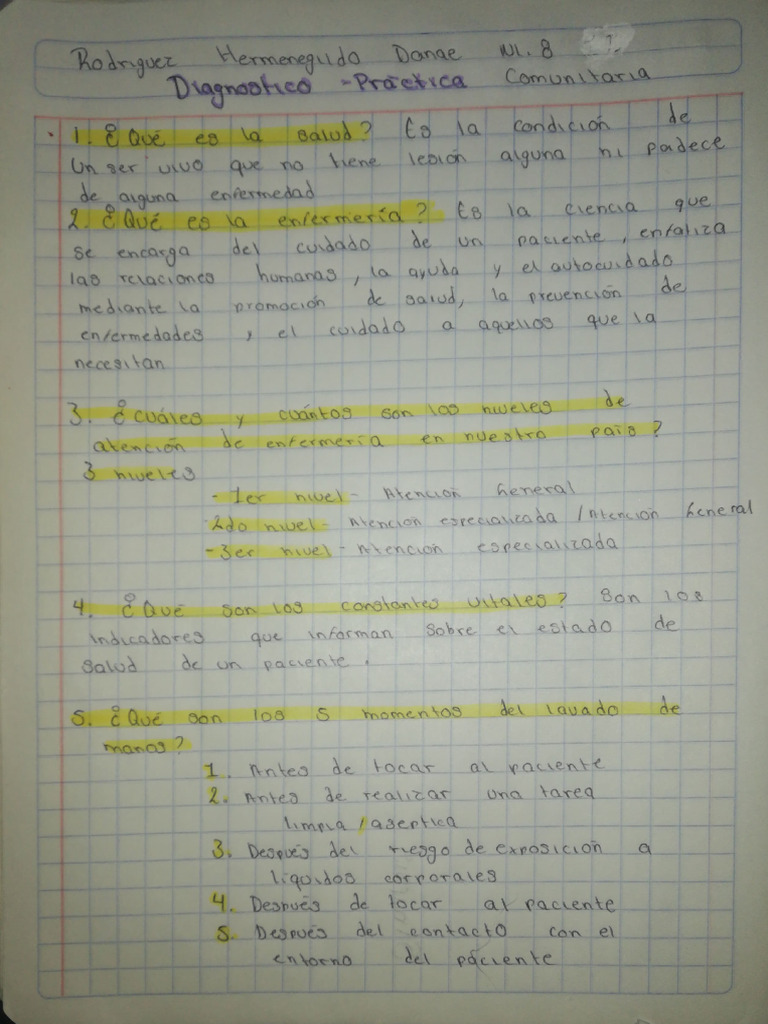 Rodriguez Hermenegildo Danae Nl. 8
Diagnostico - Práctica Comunitaria
1. ¿Qué es la salud? Es la condición de
un ser vivo que no tiene lesión alguna ni padece
de alguna enfermedad
2. ¿Qué es la enfermería? Es la ciencia que
se encarga del cuidado de un paciente, enfatiza
las relaciones humanas, la ayuda y el autocuidado
mediante la promoción de salud, la prevención de
enfermedades, el cuidado a aquellos que la
necesitan
3. ¿cuáles y cuántos son los niveles de
atención de enfermería en nuestro país?
3 niveles
- 1er nivel - Atención General
- 2do nivel - Atención especializada / Atención General
- 3er nivel - Atención especializada
4. ¿Qué son los constantes vitales? Son los
indicadores que informan sobre el estado de
salud de un paciente.
5. ¿Qué son los 5 momentos del lavado de
manos?
1. Antes de tocar al paciente
2. Antes de realizar una tarea
limpia / aseptica
3. Después del riesgo de exposición a
líquidos corporales
4. Después de tocar al paciente
5. Después del contacto con el
entorno del paciente